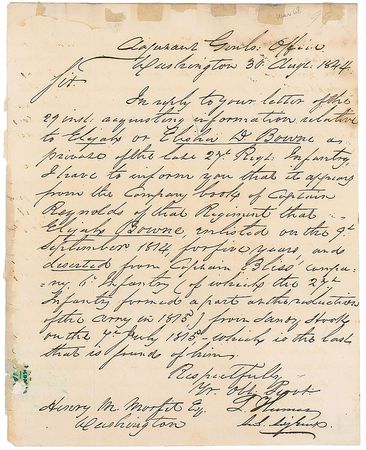 Adjutant Genls. Office
Washington 30 Augt. 1844
Sir.
In reply to your letter of the
29 inst: requesting information relative
to Elijah or Elisha D Bowne as
private of the late 27th Regt. Infantry
I have to inform you that it appears
from the Company books of Captain
Reynolds of that Regiment that
Elijah Bowne, enlisted on the 9th
September 1814, for five years, and
deserted from Captain Bliss' compa-
ny, 6th Infantry (of which the 27th
Infantry formed a part on the reduction
of the Army in 1815) from Sandy Hook
on the 4th July 1815 - which is the last
that is found of him.
Respectfully
Yr. Obt. Servt
L. Thomas
Henry M. Morfit Esq.
Washington